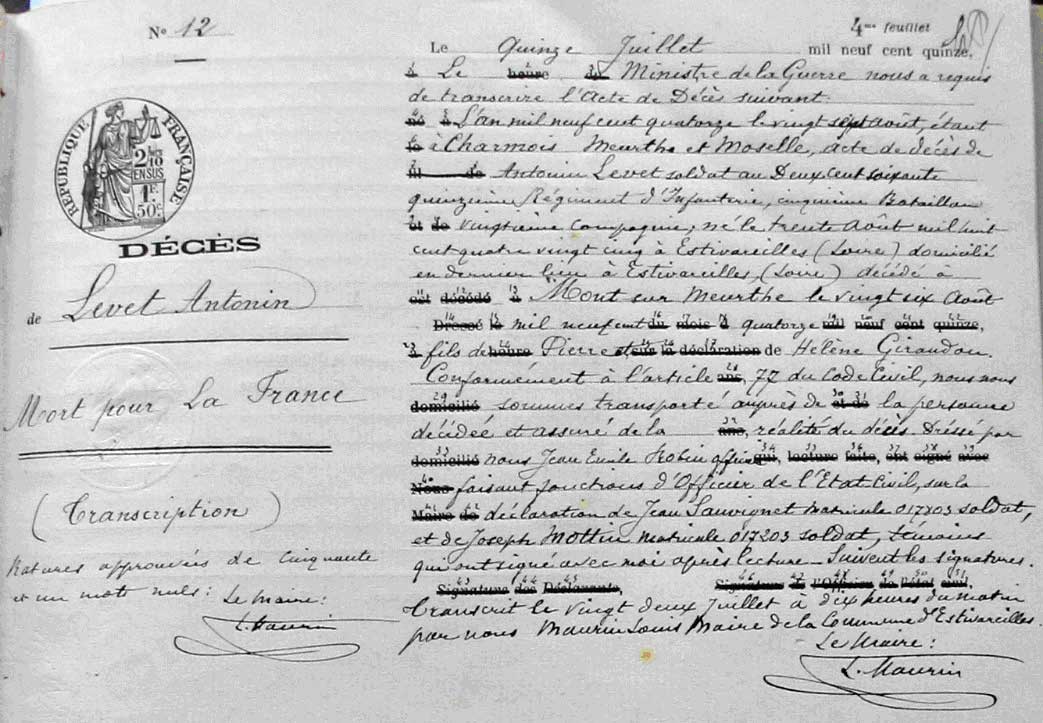 Nº 12
4me feuillet
Le Quinze Juillet mil neuf cent quinze,
Le heure du Ministre de la Guerre nous a requis
de transcrire l'Acte de Décès suivant.
L'an mil neuf cent quatorze le vingt sept août, étant
à Charmois Meurthe et Moselle, acte de décès de
Antonin Levet soldat au Deux cent soixante
quinzième Régiment d'Infanterie, cinquième Bataillon
vingtième Compagnie, né le trente Août mil huit
cent quatre vingt cinq à Estivareilles (Loire) domicilié
en dernier lieu à Estivareilles, (Loire) décédé à
est décédé à Mont sur Meurthe le vingt six Août
Dressé le mil neuf cent du mois d quatorze mil neuf cent quinze,
à fils de heure Pierre et sur la déclaration de Hélène Giraudon.
Conformément à l'article ans, 77 du Code Civil, nous nous
domicilié sommes transporté auprès de et de la personne
décédée et assuré de la ans, réalité du décès. Dressé par
domicilié nous Jean Emile Robin officier qui, lecture faite, ont signé avec
Nous faisant fonctions d'Officier de l'Etat Civil, sur la
Maire de déclaration de Jean Sauvignet matricule 017203 soldat,
et de Joseph Mottin matricule 017203 soldat, témoins
qui ont signé avec moi après lecture. Suivent les signatures.
Signature des Déclarants, Signature de l'Officier de l'état civil,
Transcrit le vingt deux Juillet à dix heures du matin
par nous Maurin Louis Maire de la Commune d'Estivareilles.
Le Maire:
L. Maurin
RÉPUBLIQUE FRANÇAISE
2/10
EN SUS
1F.
50c.
DÉCÈS
de Levet Antonin
Mort pour La France
(Transcription)
Ratures approuvées de Cinquante
et un mots nuls: Le Maire:
L. Maurin